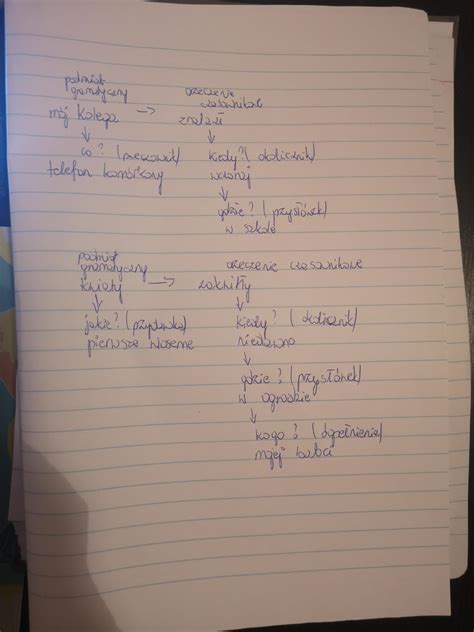 podmiot orzeczenie
gramatyczny czasownikowe
mój kolega → znalazł
↓ ↓
co? (rzeczownik) kiedy? (okolicznik)
telefon komórkowy wczoraj
↓
gdzie? (przysłówek)
w szkole
podmiot
gramatyczny orzeczenie czasownikowe
kwiaty → zakwitły
↓ ↓
jakie? (przydawka) kiedy? (okolicznik)
pierwsze wiosenne niedawno
↓
gdzie? (przysłówek)
w ogrodzie
↓
kogo? (dopełnienie)
mojej babci